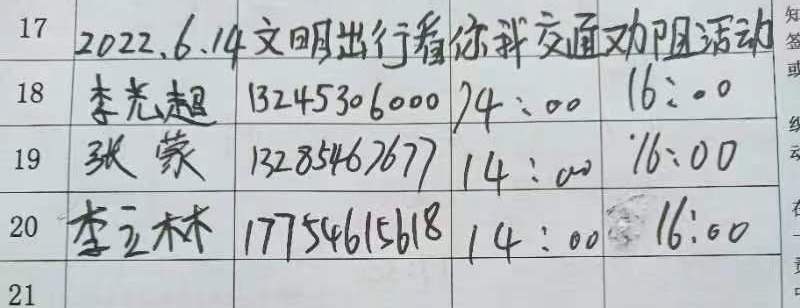 17 2022.6.14文明出行看你我交通劝阻活动
18 李光超 13245306000 14:00 16:00
19 张蒙 13285467677 14:00 16:00
20 李立林 17754615618 14:00 16:00
21
知
签
或
动
在